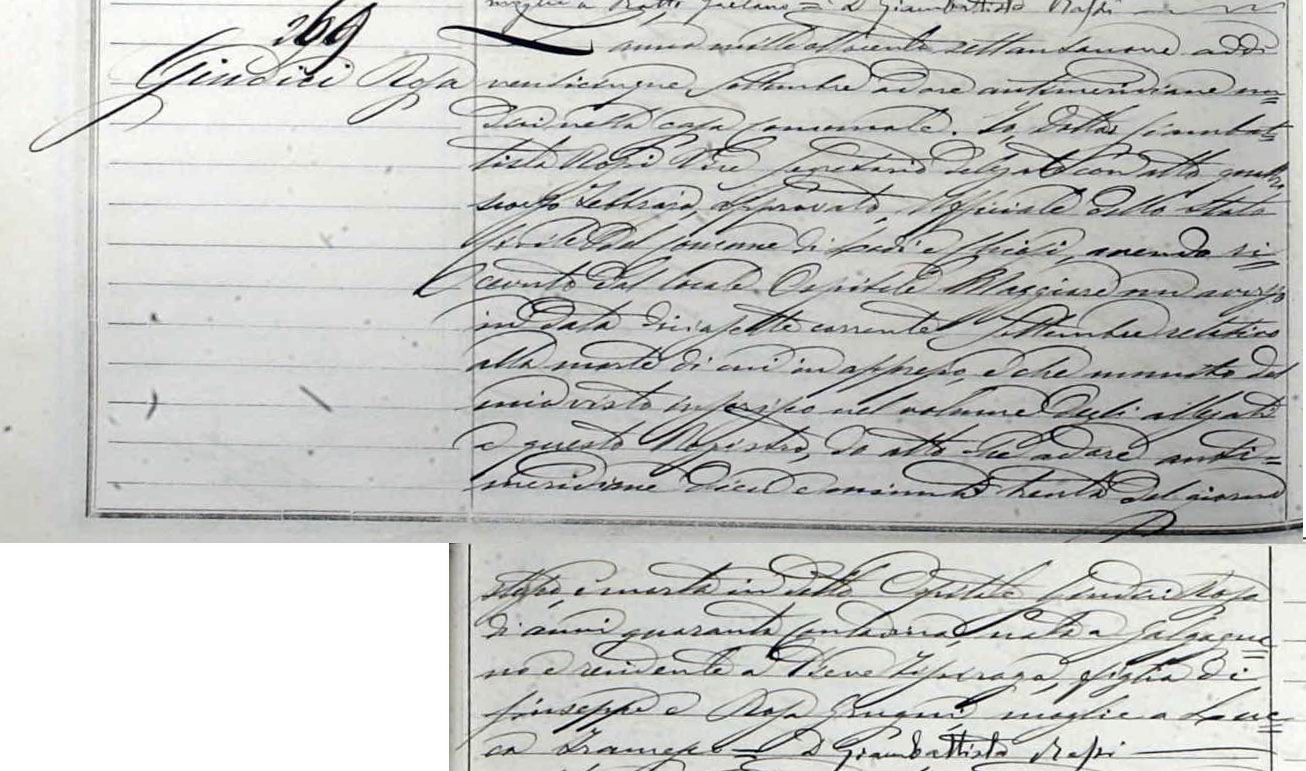 moglie a Ratti Gaetano = D Giambattista Rossi
269
Giudici Rosa
L'anno mille ottocento settantanove addì
venticinque Settembre ad ore antimeridiane un=
dici nella casa comunale. Io, Dottor Giambat=
tista Rossi Vice Segretario delegato con atto quattro
scorso Febbraio, approvato, Ufficiale dello Stato
Civile del Comune di Lodi, avendo ri=
cevuto dal locale Ospitale Maggiore un avviso
in data diciasette corrente Settembre relativo
alla morte di cui in appresso, e che munito del
mio visto inserisco nel volume degli allegati
a questo Registro, do atto che ad ore anti=
meridiane dieci e minuti trenta del giorno
stesso, è morta in detto Ospitale Giudici Rosa
di anni quaranta, contadina, nata a Galgagna=
no e residente a Pieve Fissiraga, figlia di
Giuseppe e Rosa Grugni, moglie a
Francesco = D Giambattista Rossi